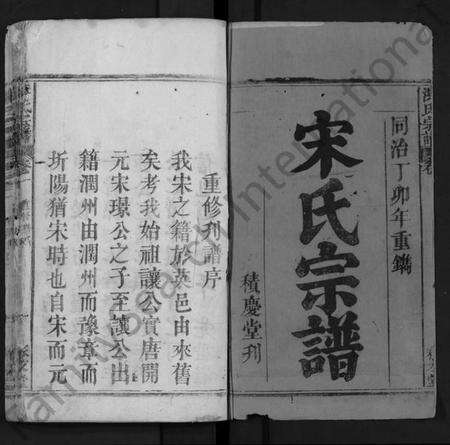 同治丁卯年重鐫
宋氏宗譜
積慶堂刊
重修列譜序
我宋之籍於英邑由來舊
矣考我始祖讓公實唐開
元宋璟公之子至讓公出
籍潤州由潤州而豫章而
圻陽猶宋時也自宋而元